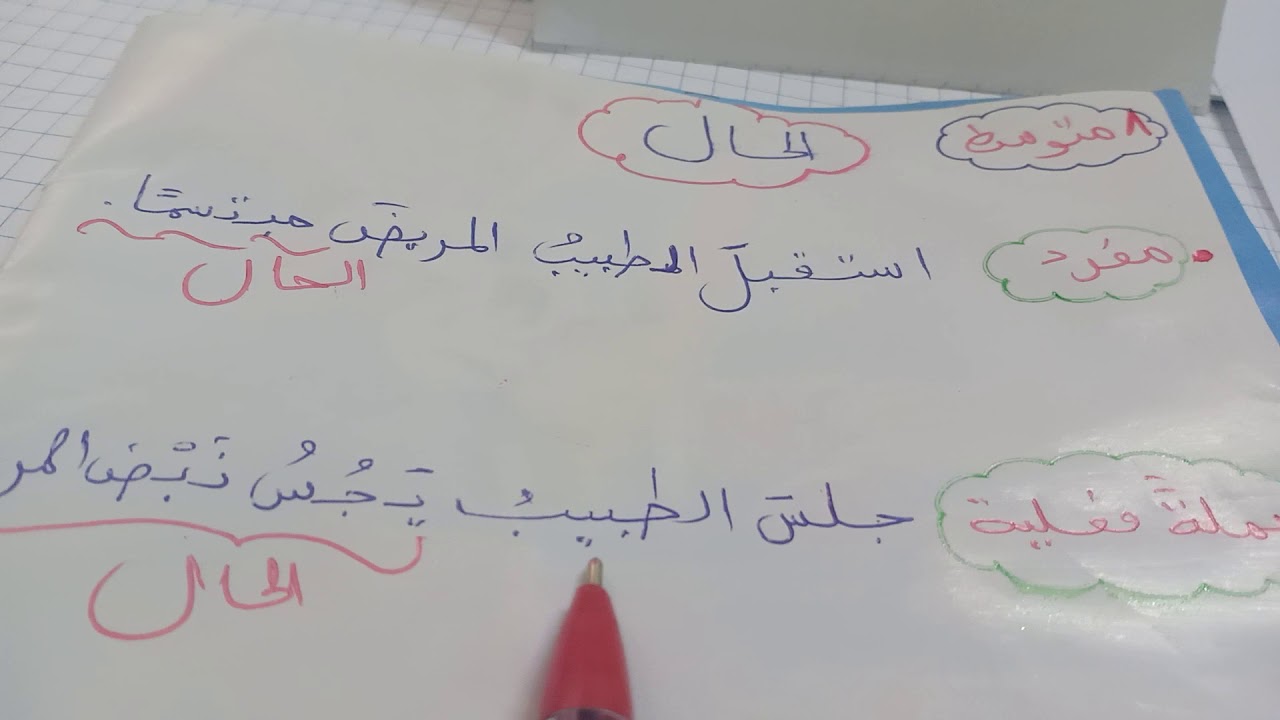 ٨ متوسط
الحال
مفرد
استقبلَ الطبيبُ المريضَ مبتسمًا.
الحال
جملةٌ فعلية
جلسَ الطبيبُ يَجُسُّ نَبْضَ
الحال